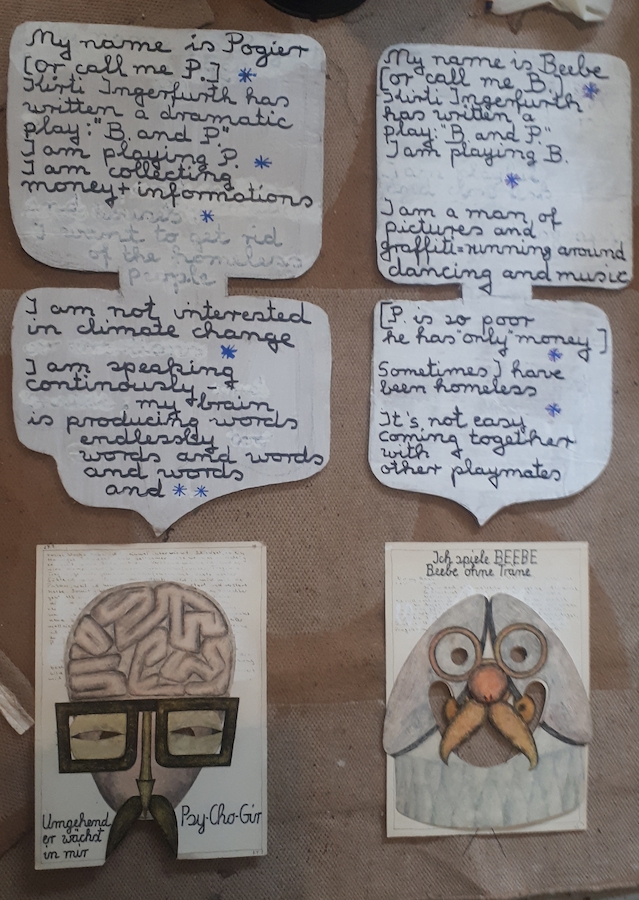 My name is Pogier
[or call me P.] *
Kirti Ingerfurth has
written a dramatic
play: "B. and P."
I am playing P. *
I am collecting
money + informations
*
I want to get rid
of the homeless
people
I am not interested
in climate change
*
I am speaking
continously -
my brain
is producing words
endlessly
words and words
and words
and * *
My name is Beebe
[or call me B.] *
Kirti Ingerfurth
has written a
play: "B. and P."
I am playing B.
*
I am a man of
pictures and
graffiti = running around
dancing and music
[P. is so poor
he has "only" money ]
*
Sometimes I have
been homeless
*
It's not easy
coming together
with
other playmates
Umgehend
er wächst
in mir
Psy-Cho-Gir
Ich spiele BEEBE
Beebe ohne Träne